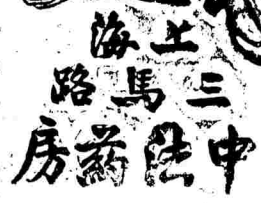 上海
三馬路
中法药房